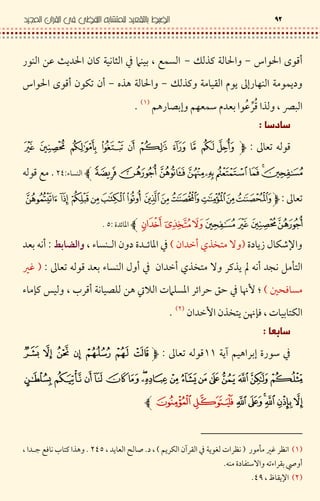 ٩٢ الضبط بالتقعيد للمتشابه اللفظي في القرآن المجيد
أقوى الحواس - والحالة كذلك - السمع ، بينما في الثانية كان الحديث عن النور
وديمومة النهار إلى يوم القيامة وكذلك - والحالة هذه - أن تكون أقوى الحواس
البصر ، ولذا قُرِّعُوا بعدم سمعهم وإبصارهم (١) .
سادسا :
قوله تعالى : ﴿ وَأُحِلَّ لَكُم مَّا وَرَآءَ ذَٰلِكُمْ أَن تَبْتَغُوا۟ بِأَمْوَٰلِكُم مُّحْصِنِينَ غَيْرَ
مُسَٰفِحِينَ ۚ فَمَا ٱسْتَمْتَعْتُم بِهِۦ مِنْهُنَّ فَـَٔاتُوهُنَّ أُجُورَهُنَّ فَرِيضَةً ﴾ النساء:٢٤ . مع قوله
تعالى : ﴿ وَٱلْمُحْصَنَٰتُ مِنَ ٱلْمُؤْمِنَٰتِ وَٱلْمُحْصَنَٰتُ مِنَ ٱلَّذِينَ أُوتُوا۟ ٱلْكِتَٰبَ مِن قَبْلِكُمْ إِذَآ ءَاتَيْتُمُوهُنَّ
أُجُورَهُنَّ مُحْصِنِينَ غَيْرَ مُسَٰفِحِينَ وَلَا مُتَّخِذِىٓ أَخْدَانٍ ﴾ المائدة: ٥ .
والإشكال زيادة ( ولا متخذي أخدان ) في المائدة دون النساء ، والضابط : أنه بعد
التأمل نجد أنه لم يذكر ولا متخذي أخدان في أول النساء بعد قوله تعالى : ( غير
مسافحين ) ؛ لأنها في حق حرائر المسلمات اللاتي هن للصيانة أقرب ، وليس كإماء
الكتابيات ، فإنهن يتخذن الأخدان (٢) .
سابعا :
في سورة إبراهيم آية ١١ قوله تعالى : ﴿ قَالَتْ لَهُمْ رُسُلُهُمْ إِن نَّحْنُ إِلَّا بَشَرٌ
مِّثْلُكُمْ وَلَٰكِنَّ ٱللَّهَ يَمُنُّ عَلَىٰ مَن يَشَآءُ مِنْ عِبَادِهِۦ ۖ وَمَا كَانَ لَنَآ أَن نَّأْتِيَكُم بِسُلْطَٰنٍ
إِلَّا بِإِذْنِ ٱللَّهِ ۚ وَعَلَى ٱللَّهِ فَلْيَتَوَكَّلِ ٱلْمُؤْمِنُونَ ﴾
(١) انظر غير مأمور ( نظرات لغوية في القرآن الكريم ) ، د. صالح العايد ، ٢٤٥ . وهذا كتاب نافع جدا ،
أوصي بقراءته والاستفادة منه.
(٢) الإيقاظ ، ٤٩.